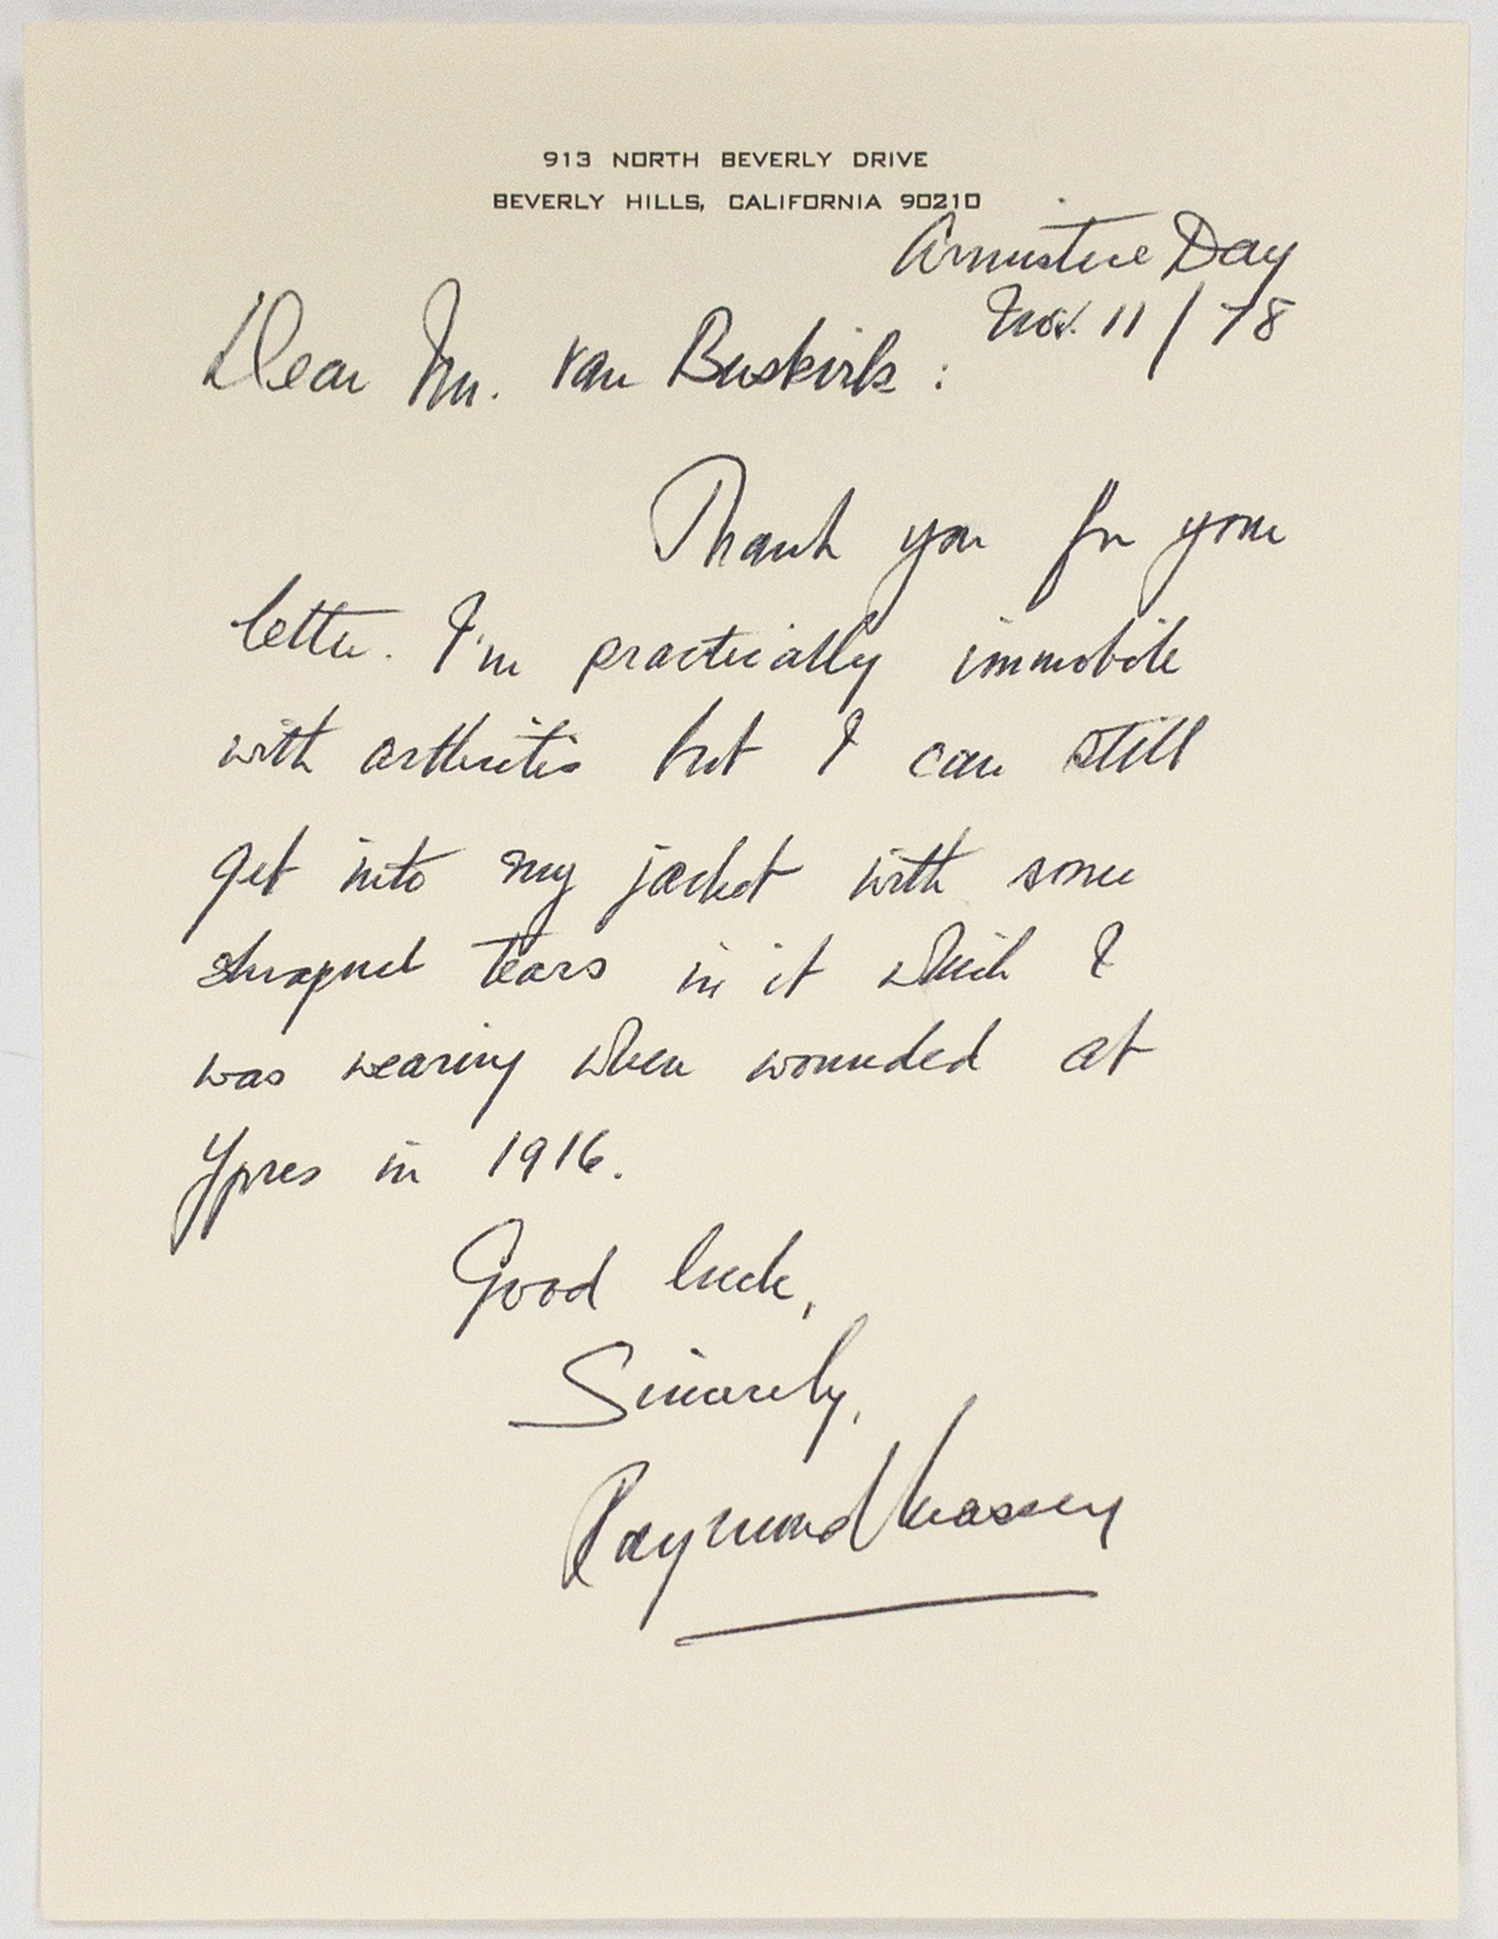 913 NORTH BEVERLY DRIVE
BEVERLY HILLS, CALIFORNIA 90210
Armistice Day
Nov. 11 / 78
Dear Mr. Van Buskirk :
Thank you for your
letter. I'm practically immobile
with arthritis but I can still
get into my jacket with some
shrapnel tears in it which I
was wearing when wounded at
Ypres in 1916.
Good luck,
Sincerely,
Raymond Massey